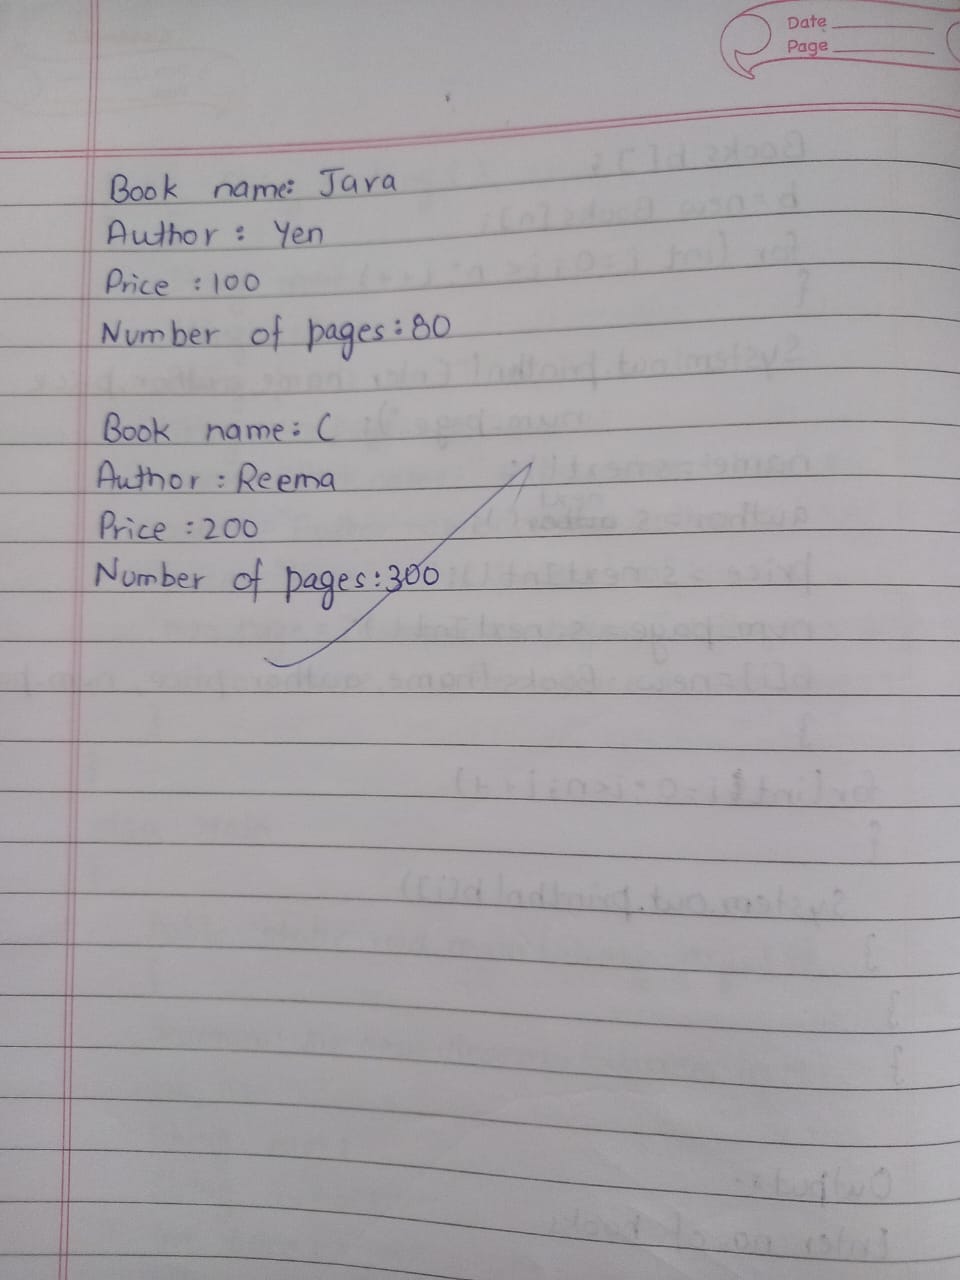 Date
Page
Book name: Java
Author : Yen
Price : 100
Number of pages : 80
Book name: C
Author : Reema
Price : 200
Number of pages : 300